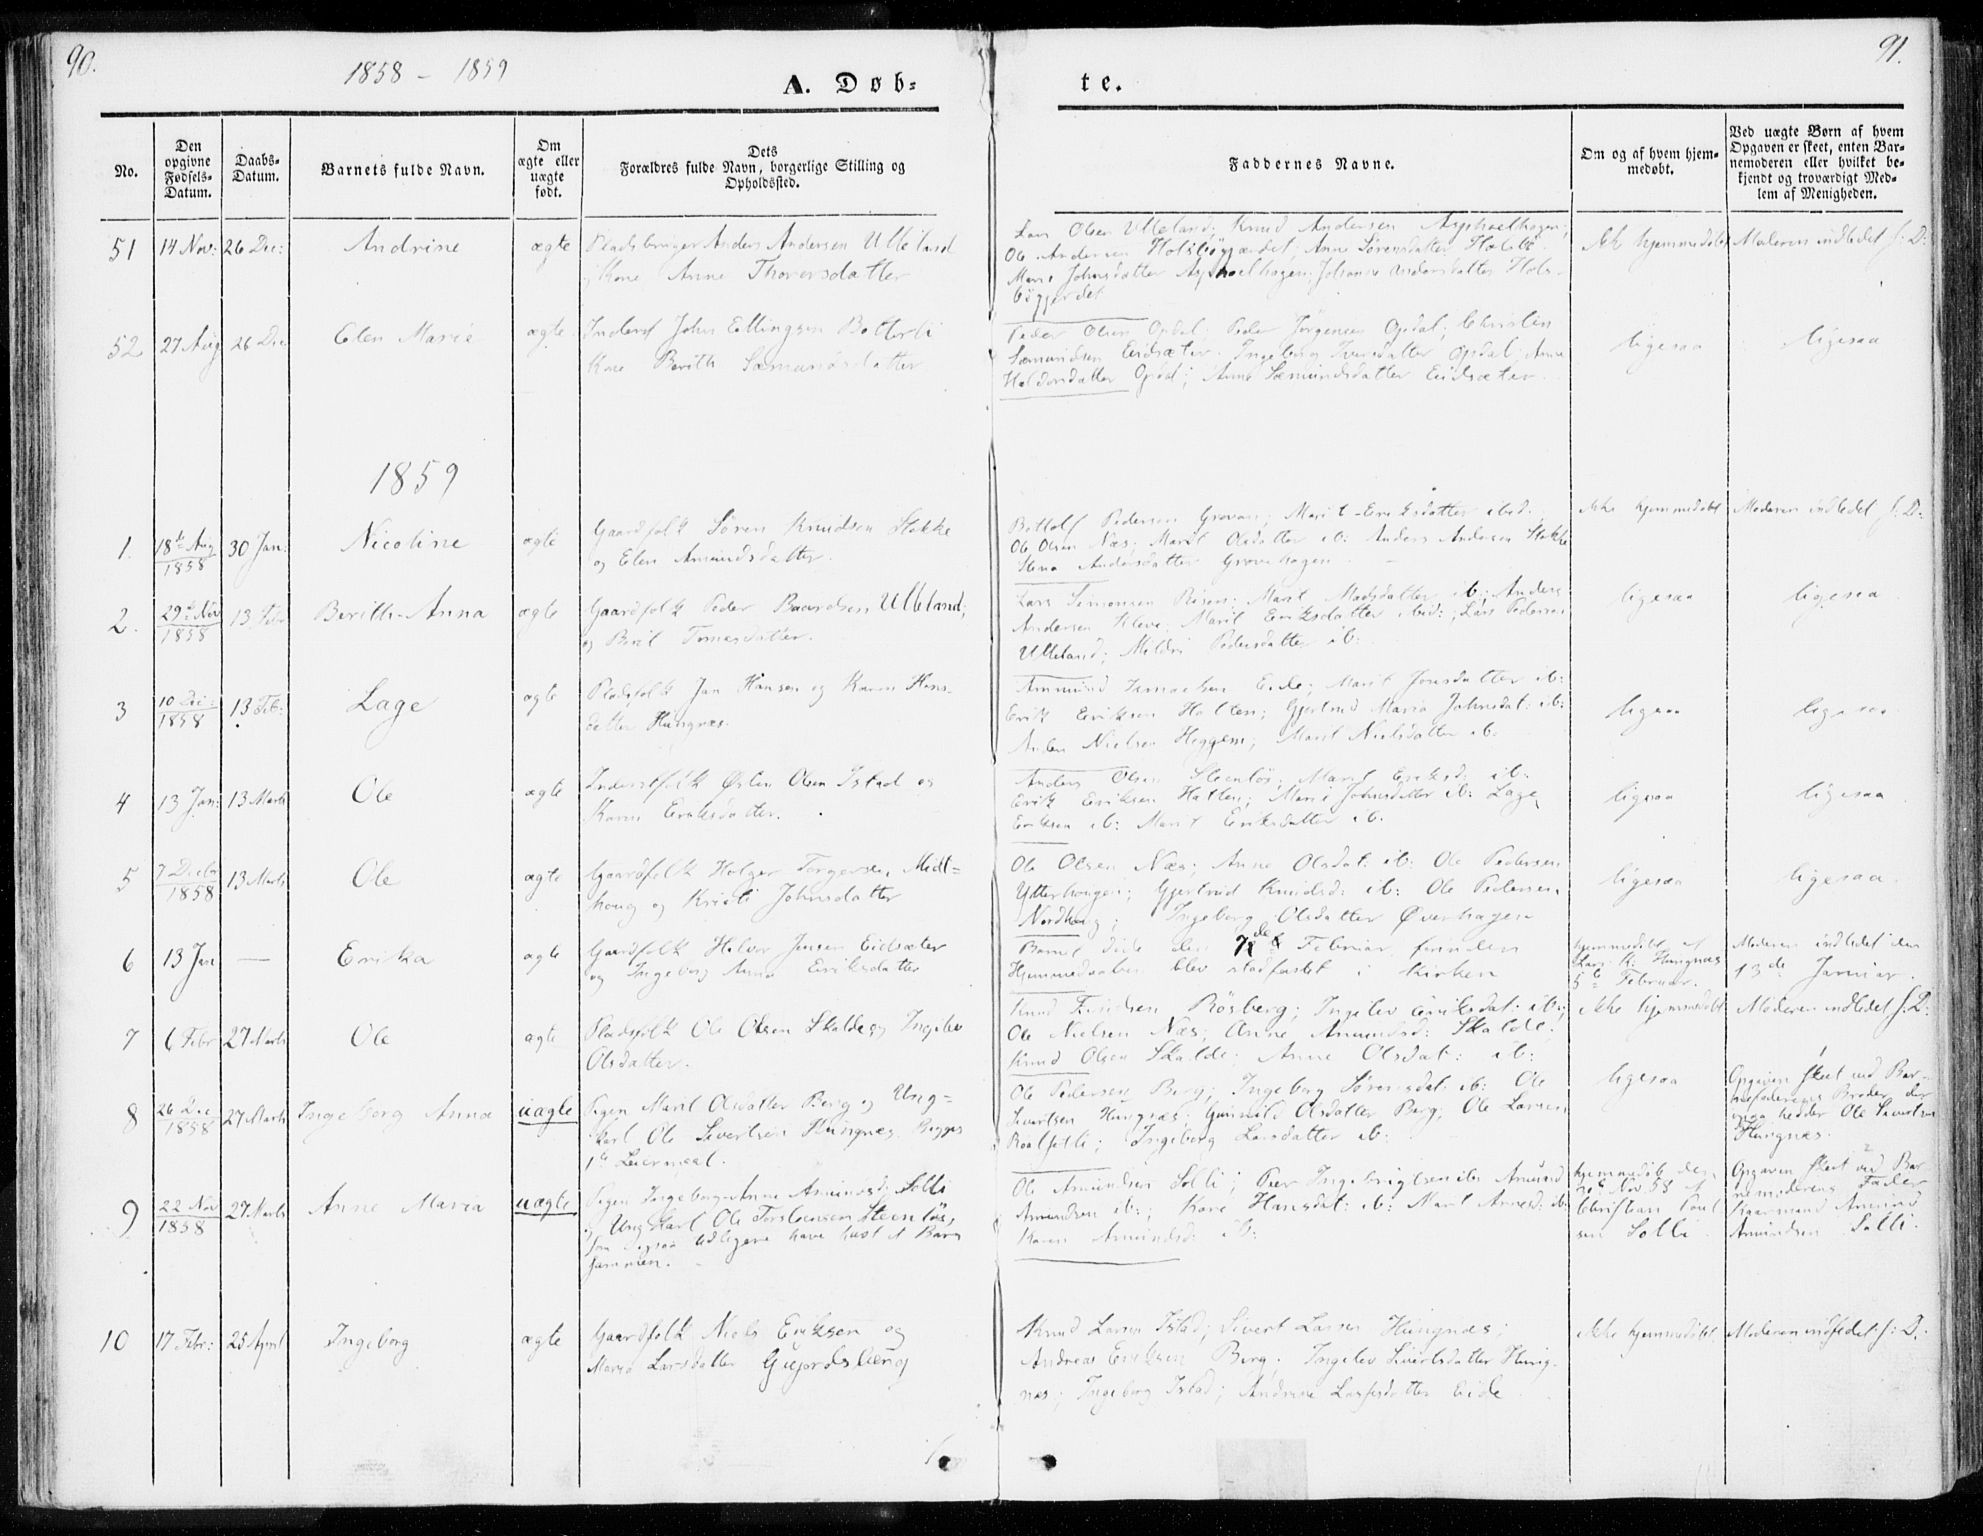 90.
1858 - 1859
A. Døb-
te.
91.
No.
Den
opgivne
Fødsels-
Datum.
Daabs-
Datum.
Barnets fulde Navn.
Om
ægte eller
uægte
født.
Dets
Forældres fulde Navn, borgerlige Stilling og
Opholdssted.
Faddernes Navne.
Om og af hvem hjem-
medøbt.
Ved uægte Børn af hvem
Opgaven er skeet, enten Bar-
nemoderen eller hvilket be-
kjendt og troværdigt Med-
lem af Menigheden.
51
14 Nov:
26 Dec:
Andrine
ægte
Pladsbruger Anders Andersen Ulleland
Kone Anne Thorersdatter
Lars Olsen Ulleland; Knud Andersen Asphoelhagen;
Ole Andersen Holsbøgjærdet; Anne Sørensdatter
Marit Johnsdatter Asphoelhagen; Johanne Andersdatter Hols-
bøggjerdet
Ikke hjemmedøbt
Moderen indledet s: D:
52
27 Aug
26 Dec
Elen Marie
ægte
Inderst John Ellingsen Bolterli
Kone Berith Sæmundsdatter
Peder Olsen Opdal; Peder Jørgensen Opdal; Christen
Sæmundsen Eidsæter; Ingeborg Iversdatter Opdal; Anne
Haldorsdatter Opdal; Anne Sæmundsdatter Eidsæter
ligesaa
ligesaa
1859
1.
18de Aug
1858
30 Jan:
Nicoline
ægte
Gaardfolk Søren Knudsen Stokke
og Elen Amundsdatter.
Bottolf Pedersen Grovan; Marit Eriksdatter ibid:;
Ole Olsen Næs; Marit Olsdatter ib: Anders Andersen Stokke
Stena Andersdatter Grovehagen
ikke hjemmedøbt
Moderen indledet s: D:
2.
29de Nov
1858
13 Febr
Berith-Anna
ægte
Gaardfolk Peder Baardsen Ulleland;
og Brit Tomesdatter.
Lars Simonsen Rösen; Marit Madsdatter ib; Anders
Andersen Kleve; Marit Eriksdatter ibid:; Lars Pedersen
Ulleland; Mildri Pedersdatter ib:
ligesaa
ligesaa
3
10 Dec:
1858
13 Feb:
Lage
ægte
Pladsfolk Jan Hansen og Karen Hans-
datter Hungnæs.
Ammund Eide; Marit Jonsdatter ib:
Erik Eriksen Halten; Gjertrud Maria Johnsdat: ib:
Anders Nielsen Heggem; Marit Nielsdatter ib:
ligesaa
ligesaa
4
13 Jan:
13 Marts
Ole
ægte
Inderstfolk Østen Olsen Istad og
Karen Eriksdatter.
Anders Olsen Steenløs; Marit Eriksd: ib:
Erik Eriksen Halten; Marit Johnsdatter ib: Lage
Eriksen ib: Marit Eriksdatter ib.
ligesaa
ligesaa
5
7 Decbr
1858
13 Marts
Ole
ægte
Gaardfolk Holger Torgersen Midt-
houg og Kristi Johnsdatter
Ole Olsen Næs; Anne Olsdat: ib: Ole Pedersen
Ytterhougen; Gjertrud Knudsd: ib: Ole Pedersen
Nordhoug; Ingeborg Olsdatter Øverhagen
ligesaa
ligesaa.
6
13 Jan
—
Erika
ægte
Gaardfolk Halvor Jensen Eidsæter
og Ingeborg Anna Eriksdatter
Barnet døde den 7de Februar forinden
Hjemmedaaben blev stadfæstet i Kirken
hjemmedøbt af
Lars K: Hungnæs
5te Februar.
Moderen indledet den
13de Januar.
7
6 Febr
27 Marts
Ole
ægte
Pladsfolk Ole Olsen Skalde og Ingelev
Olsdatter.
Knud Knudsen Rösberg; Ingelev Eriksdat: ib:;
Ole Nielsen Næs; Anne Amundsd: Skalde;
Knud Olsen Skalde; Anne Olsdat: ib:
ikke hjemmedøbt
Moderen indledet s: D:
8
26 Dec
1858
27 Marts
Ingeborg Anna
uægte
Pigen Marit Olsdatter Berg og Ung-
karl Ole Sivertsen Hungnæs. Begges
1ste Leiermaal.
Ole Pedersen Berg; Ingeborg Sørensdat: ib: Ole
Sivertsen Hungnæs; Gunnild Olsdatter Berg; Ole Larsen
Roalfsetli; Ingeborg Larsdatter ib:
ligesaa
Opgaven skeet ved Bar-
nefaderens Broder der
ogsaa hedder Ole Sivertsen
Hungnæs.
9
22 Nov
1858
27 Marts
Anne Maria
uægte
Pigen Ingeborg-Anne Amundsd: Solli
og Ungkarl Ole Torstensen Steenløs,
som ogsaa tidligere have havt et Barn
sammen.
Ole Amundsen Solli; Peer Ingebrigtsen ib: Amund
Amundsen ib:; Kare Hansdat: ib: Marit Arnesd: ib:
Karen Amundsd: ib:
hjemmedøbt den
Nov 58 af
Christian Poul-
sen Solli.
Opgaven skeet ved Bar-
nemoderens Fader
Kaarmand Amund
Amundsen Solli.
10
17 Febr:
25 April
Ingeborg
ægte
Gaardfolk Niels Eriksen og
Marit Larsdatter Gujordsberg
Knud Larsen Istad; Sivert Larsen Hungnæs;
Andreas Eriksen Berg; Ingelev Sivertsdatter Hung-
næs; Ingeborg Istad; Andrine Larsdatter Eide
ikke hjemmedøbt.
Moderen indledet s: D.: